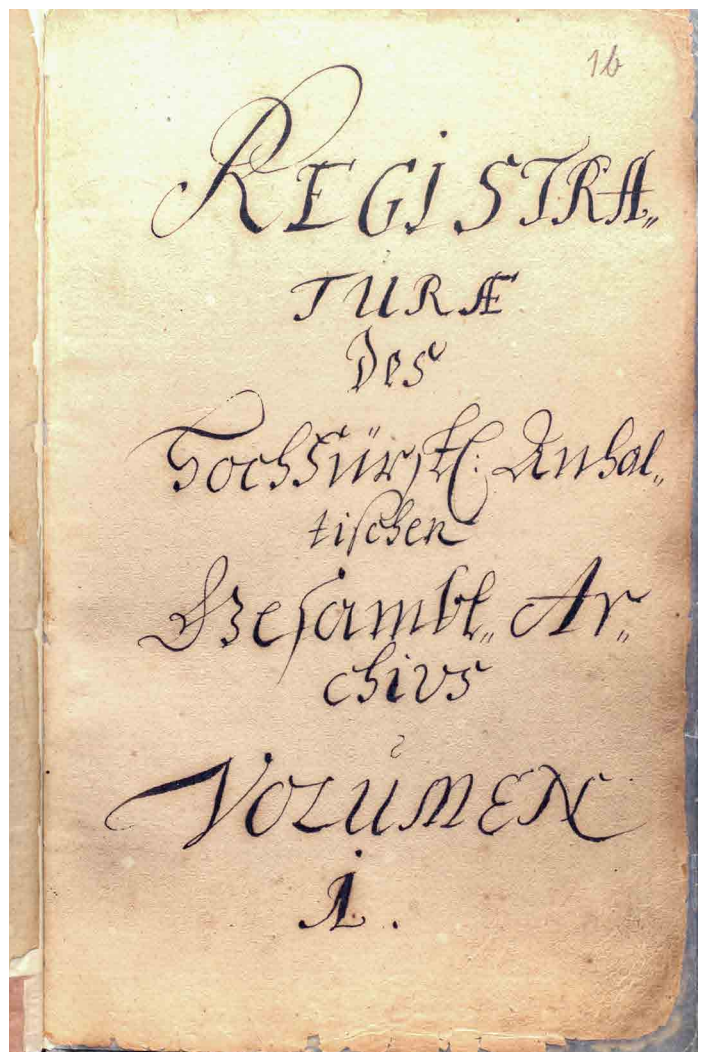 16
REGISTRA„
TURÆ
Des
Hochfürstl: Anhal„
tischen
Gesambt„ Ar„
chivs
VOLUMEN
1.